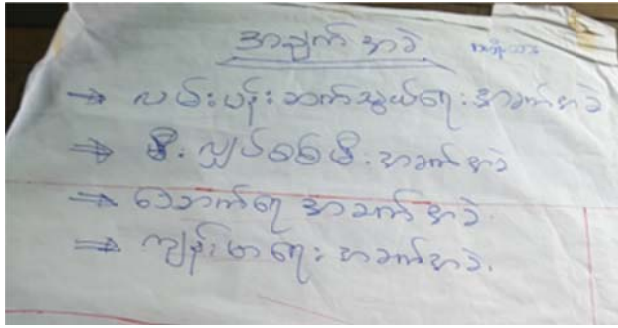 အချက် အခဲ
→ လမ်းပန်း ဆက်သွယ်ရေး အခက်အခဲ
→ မီး လျှပ်စစ်မီး အခက်အခဲ
→ သောက်ရေ အခက်အခဲ
→ ကျန်းမာရေး အခက်အခဲ.